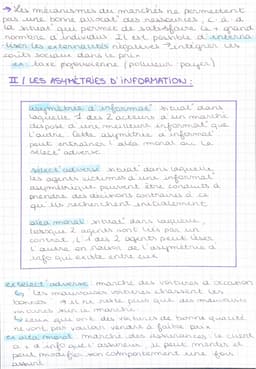 → Les mécanismes du marchés ne permettent
pas une bonne allocat° des ressources, c-à-d
la situat° qui permet de satisfaire le + grand
nombre d'individus. Il est possible d'interna-
liser les externalités négatives → intégrer les
coûts sociaux dans le prix
ex: taxe pigouvienne (pollueur payeur)
II / LES ASYMÉTRIES D'INFORMATION :
asymétrie d'informat° situat° dans
laquelle 1 des 2 acteurs d'un marché
dispose d'une meilleure informat° que
l'autre. Cette asymétrie d'informat°
peut entraîner l'aléa moral ou la
sélect° adverse
sélect° adverse situat° dans laquelle
les agents victimes d'une informat°
asymétrique peuvent être conduits à
prendre des décisions contraires à ce
qu'ils recherchent initialement
aléa moral situat° dans laquelle,
lorsque 2 agents sont liés par un
contrat, l'1 des 2 agents peut léser
l'autre en raison de l'asymétrie d'
info qui existe entre eux
ex select° adverse: marché des voitures d'occasion
↳ Les mauvaises voitures chassent les
bonnes → il ne reste plus que des mauvaises
voitures sur le marché
↳ ceux qui ont des voitures de bonne qualité
ne vont pas vouloir vendre à faible prix
ex aléa moral: marché des assurances, le client
a + d'info que l'assureur, il peut mentir et
peut modifier son comportement une fois
assuré